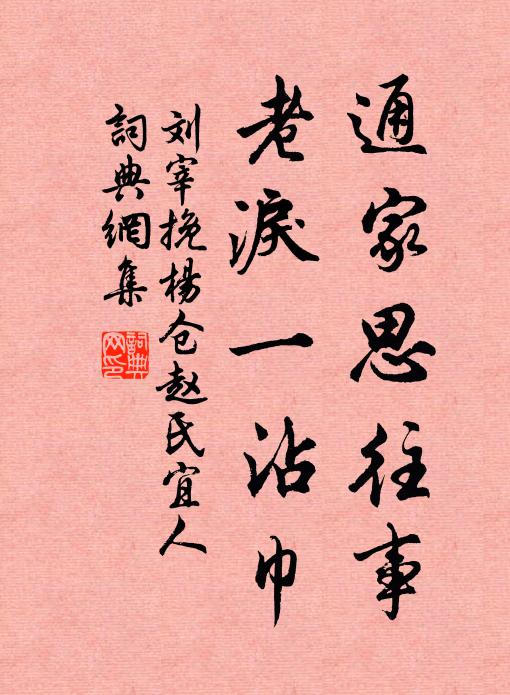 通家思往事
老淚一沾巾
刘宰挽楊仓赵氏宜人
詞典網集
詞典網印